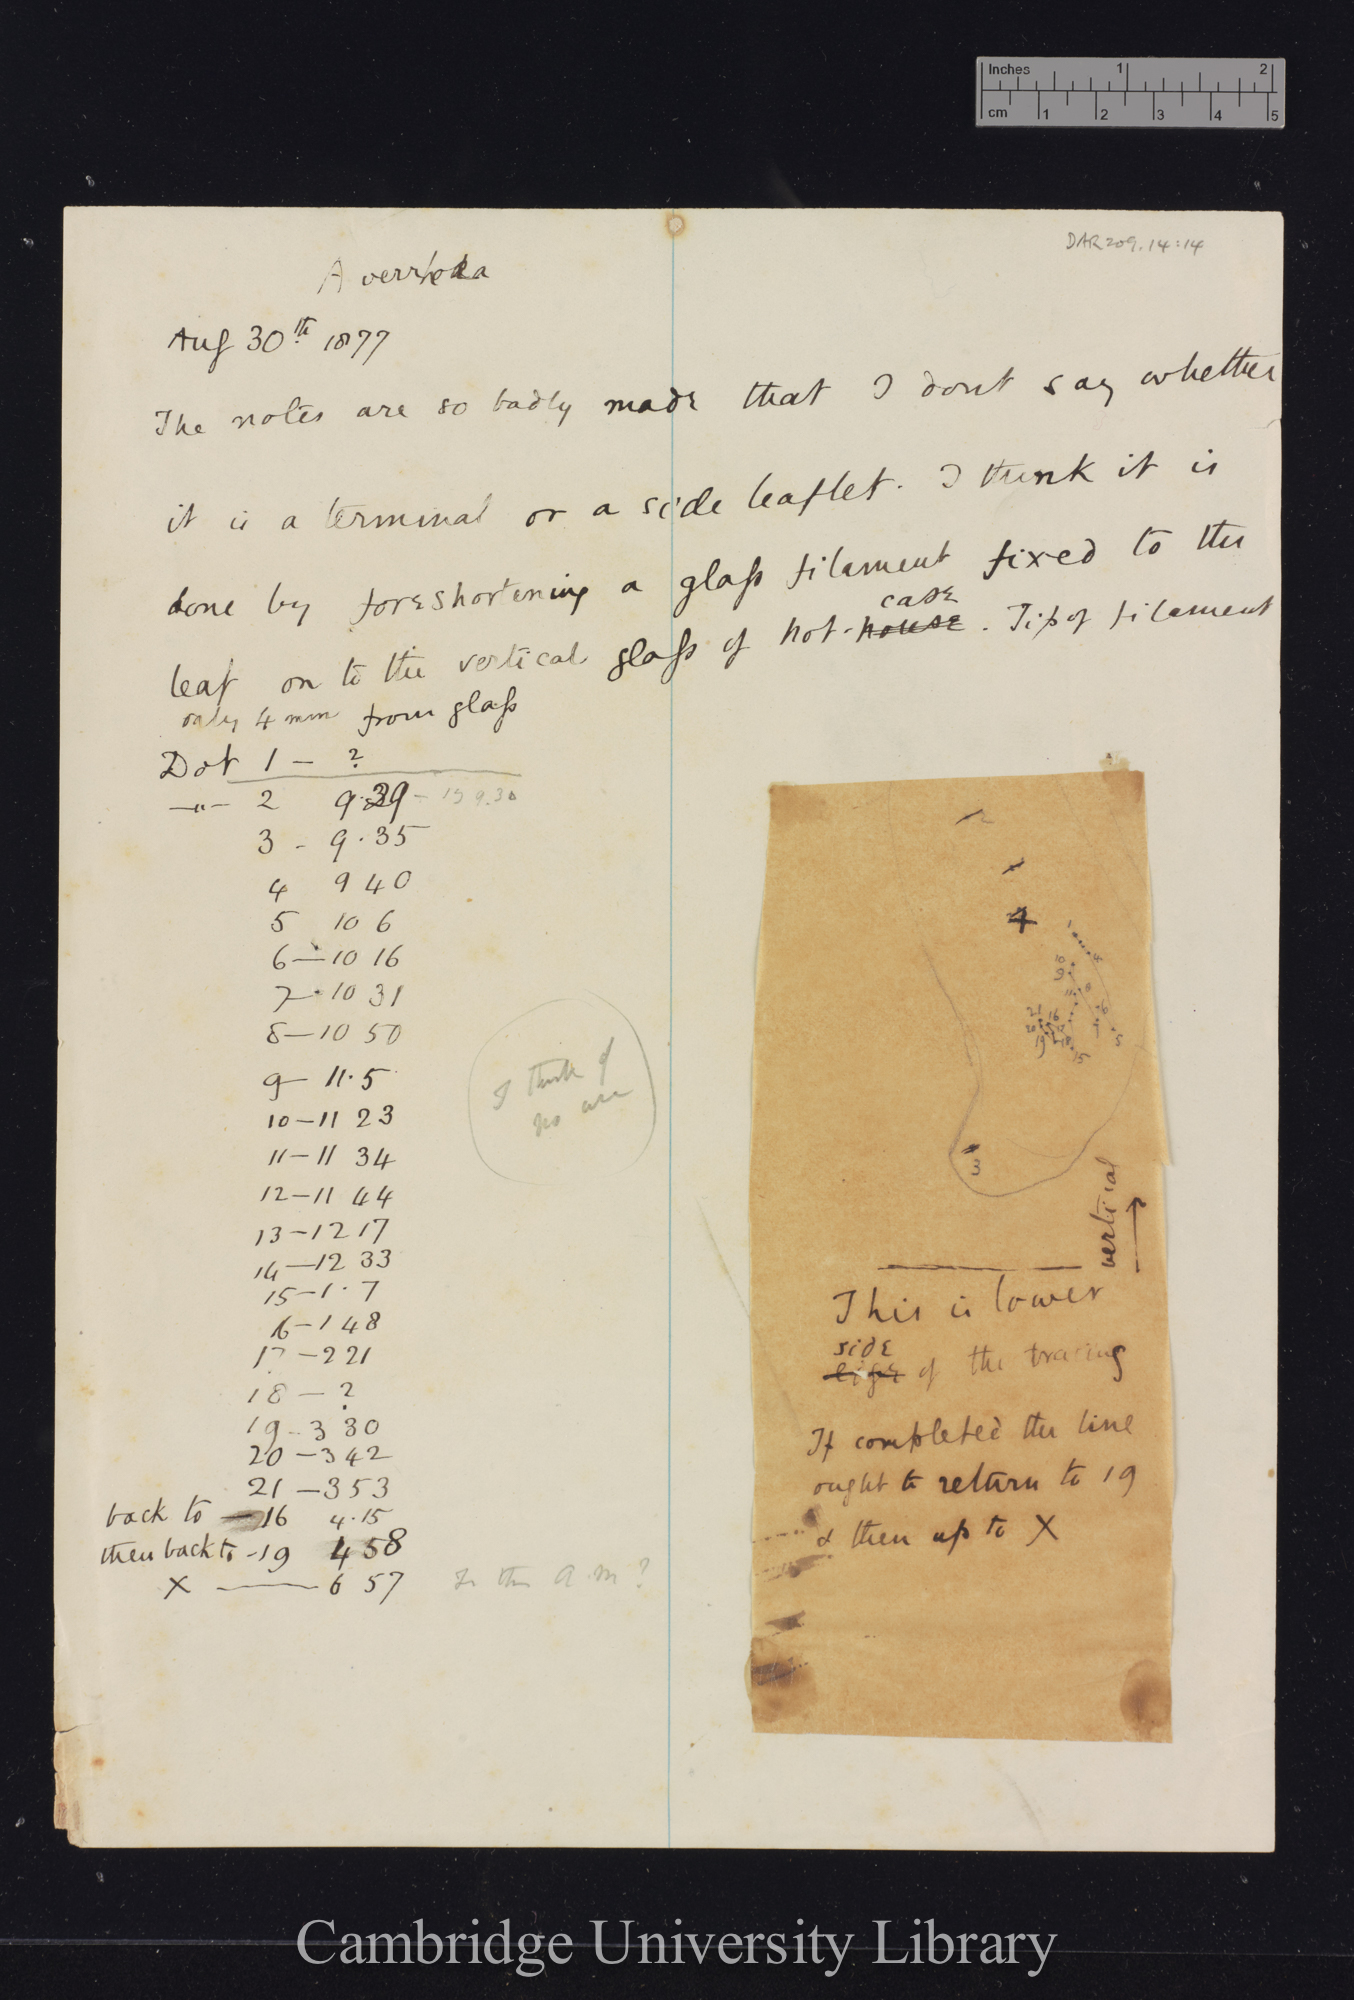 Inches 1 2
cm 1 2 3 4 5
DAR 209.14:14
Averrhoa
Aug 30th 1877
The notes are so badly made that I dont say whether
it is a terminal or a side leaflet. I think it is
done by foreshortening a glass filament fixed to the
case
leaf on to the vertical glass of hot-house. Tip of filament
only 4 mm from glass
Dot 1 - ?
-"- 2 9.39 - is 9.30
3 - 9.35
4 9 40
5 10 6
6 - 10 16
7 - 10 31
8 - 10 50
9 - 11.5
10 - 11 23
11 - 11 34
12 - 11 44
13 - 12 17
14 - 12 33
15 - 1.7
16 - 1 48
17 - 2 21
18 - ?
19 - 3 30
20 - 3 42
21 - 3 53
back to - 16 4.15
then back to - 19 4 58
X - 6 57
Is this A.M?
I think of
no use
2
1
4
1
4
10
9
11
8
6
7
5
21
16
20
19
15
3
vertical
This is lower
side
edge of the tracing
If completed the line
ought to return to 19
& then up to X
Cambridge University Library